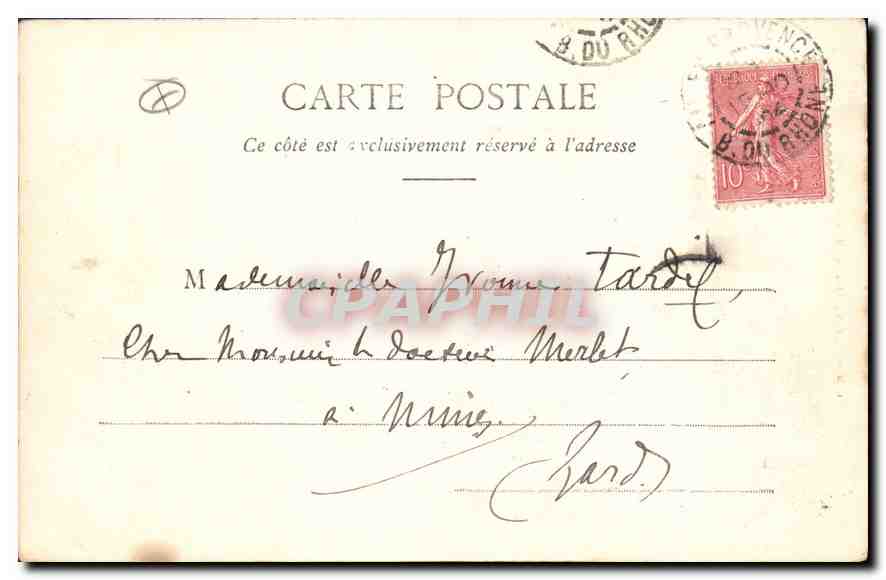 B. DU RHÔ
PROVENCE
B. DU RHONE
10
CARTE POSTALE
Ce côté est exclusivement réservé à l'adresse
Mademoiselle Yvonne Tardif,
Chez Monsieur le docteur Merlet
CPAPHIL
à Nimes
Gard